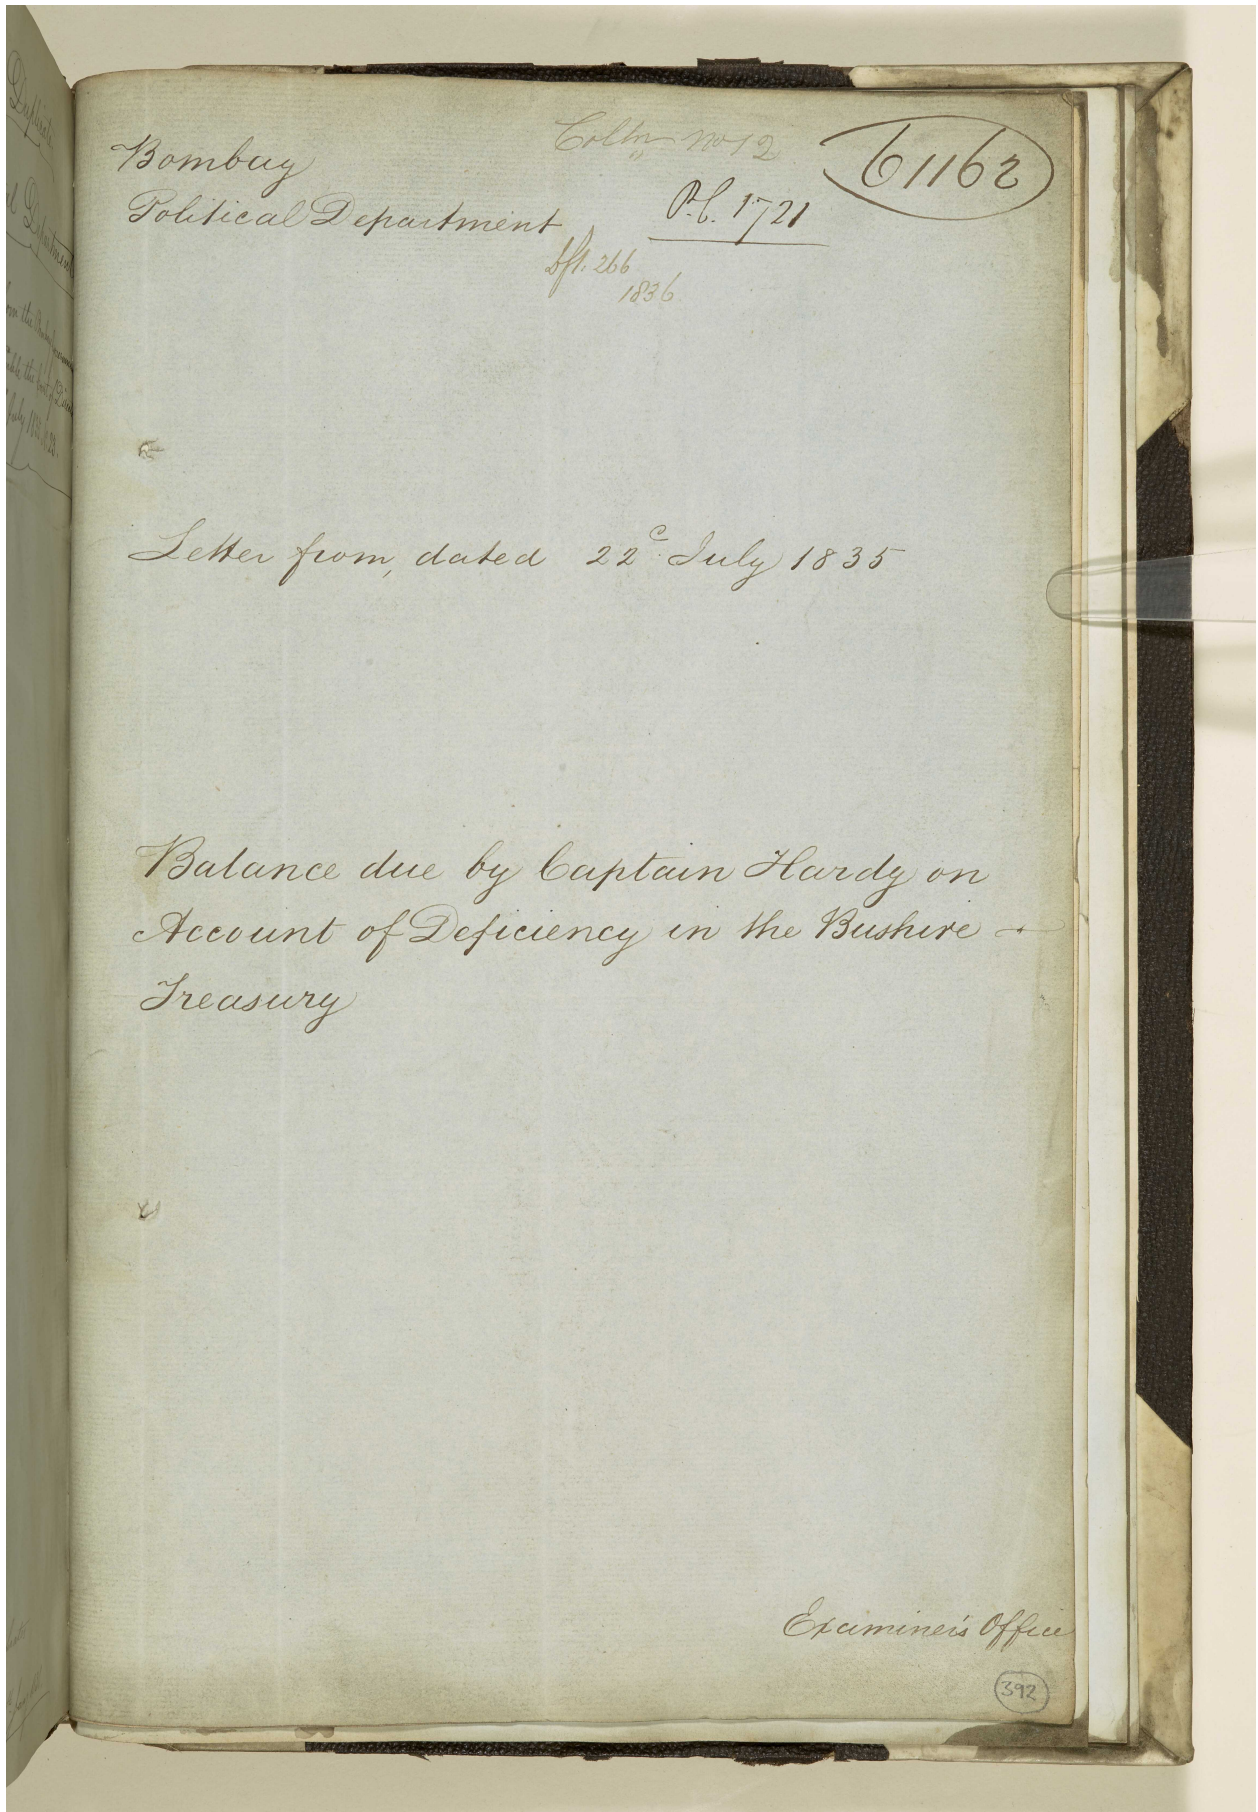 Colln No 12
61162
Bombay
Political Department
P.C. 1721
Dft. 266
1836
Letter from, dated 22d July 1835
Balance due by Captain Hardy on
Account of Deficiency in the Bushire
Treasury
Examiner's Office
392